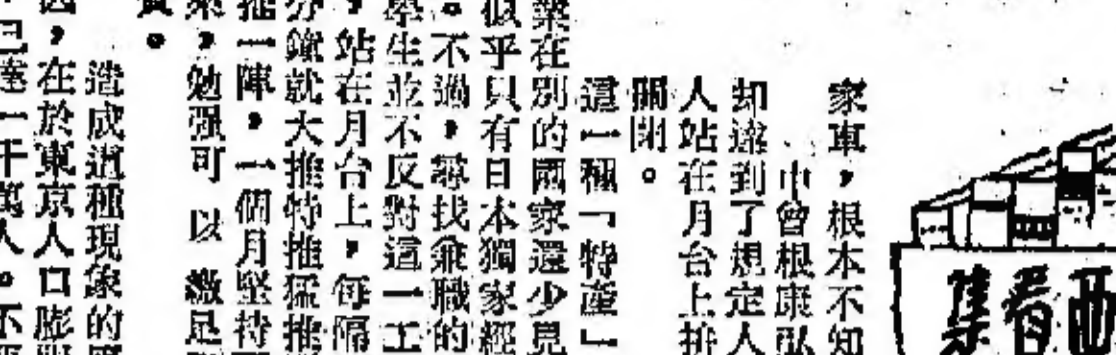 西看集
家車,根本不知
中曾根康弘
却達到了規定人
人站在月台上拚
關閉。
這一種「特產」
業在別的國家還少見
似乎只有日本獨家經
。不過,尋找兼職的
學生並不反對這一工
,站在月台上,每隔
分鐘就大推特推猛推
推一陣,一個月堅持
來,勉强可以繳足
費。
造成這種現象的
因,在於東京人口膨
已達一千萬人。不